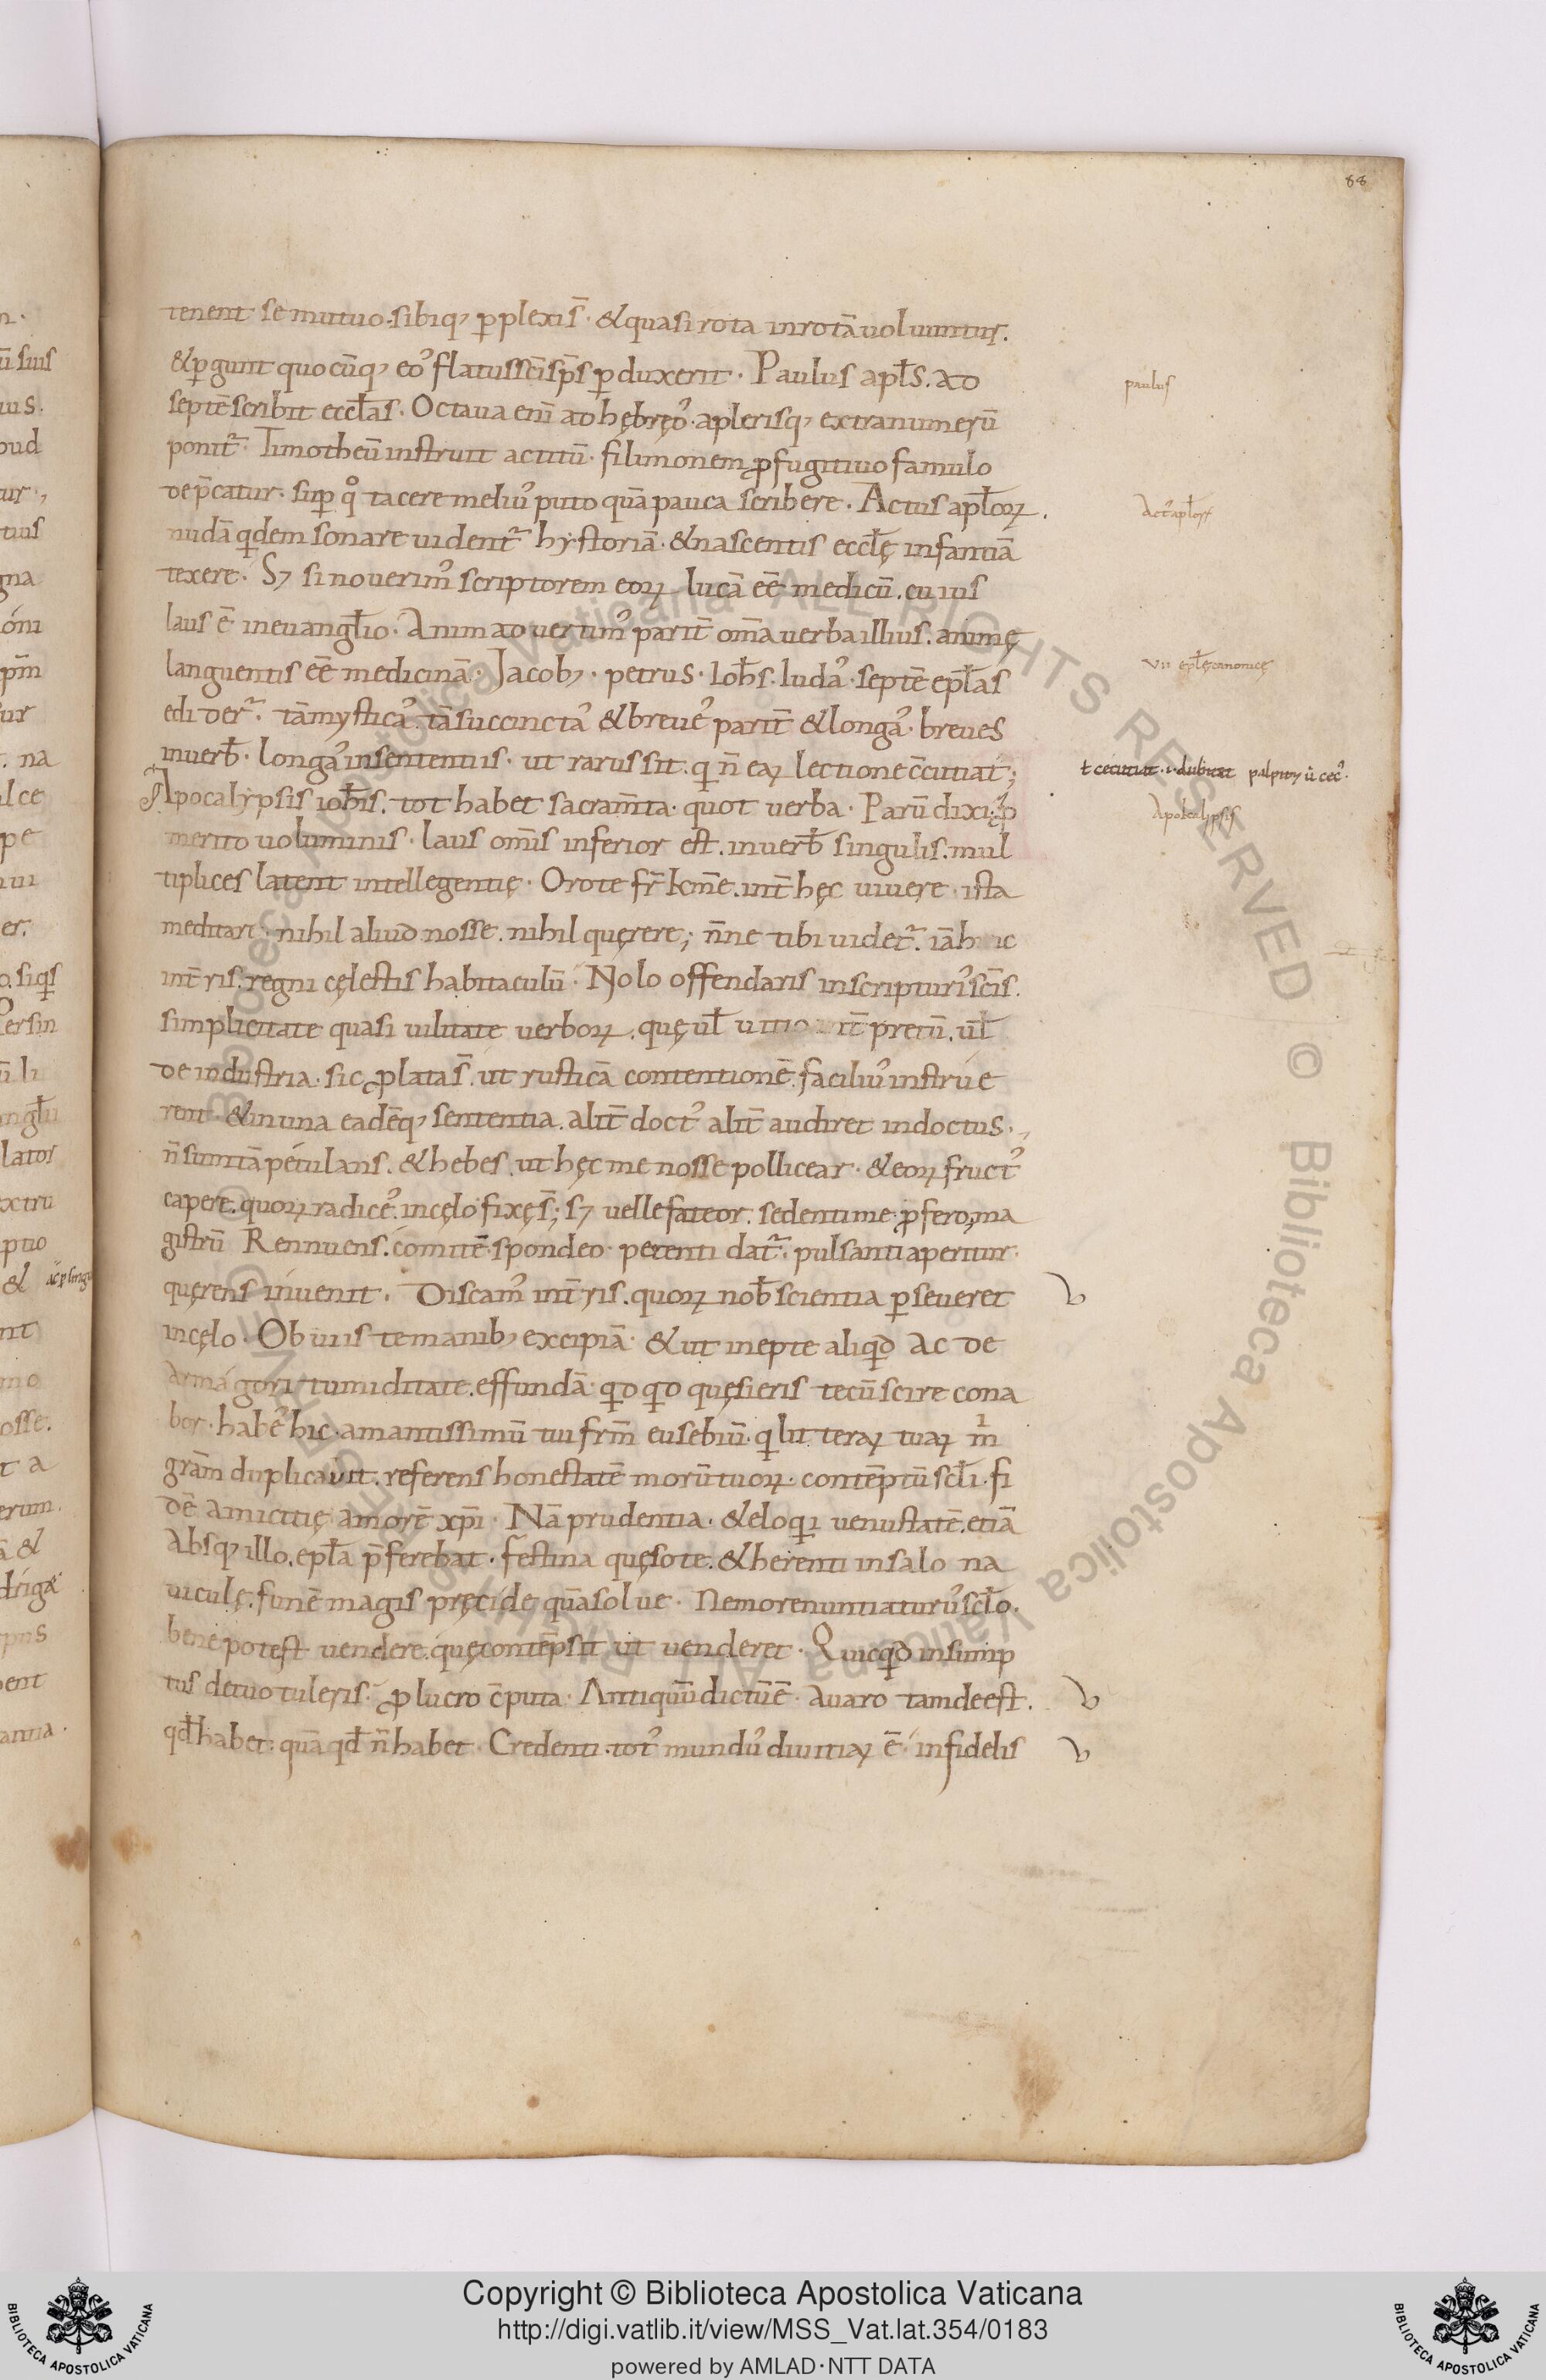 88
tenent se mutuo. sibiq; ꝑplexi s̄. & quasi rota in rotā uoluuntur.
& ꝑgunt quocūq; eo᾽ flatus sc̄i sp̄s ꝑduxerit. Paulus apl̄s. ad
paulus
septē scribit eccl̄as. Octaua eni᷄ ad hębręo᾽. a plerisq; extra numerū
ponit᷑. Timotheū instruit ac titū. filimonem ꝓ fugitiuo famulo
dep̄catur. suꝑ qͦ tacere meliu᾽ puto quā pauca scribere. Actus apl̄oꝝ.
Act᾽ apl̄oꝝ
nudā qͥdem sonare uident᷑ hystoriā. & nascentis eccl̄ę infantiā
texere. S; si nouerim᾽ scriptorem eoꝝ lucā ēē medicū. cuius
laus ē in euangl̄io. Animaduertim᾽ parit̄ om̄a uerba illius. animę
languentis ēē medicinā. Jacob;. petrus. Ioh̄s. Iuda᾽. septē epl̄as
vii epl̄ę canonicę
edider᷑. tā mystica᾽. tā succincta᾽ & breue᾽ parit̄ & longa᾽. breues
in uerb̄. longa᾽ in sententiis. ut rarus sit. qͥ n̄ eaꝝ lectione c̄cutiat;
ł cecutiat .i. dubitet palpitꝫ ū cec᾽.
Apocalypsis ioh̄is. tot habet sacram̄ta. quot uerba. Parū dixi; ꝓ
Apokalypsis
merito uoluminis. laus om̄is inferior est. in uerb̄ singulis. mul
tiplices latent intellegentię. Oro te fr̄ km̄e. int̄ hęc uiuere. ista
meditari. nihil aliud nosse. nihil quęrere; n̄ne tibi uidet᷑. iā hic
int̄ris. regni cęlestis habitaculū. Nolo offendaris in scripturi᾽ sc̄is.
simplicitate quasi uilitate uerboꝝ. quę ul̄ uitio int̄pretū. ul̄
de industria. sic ꝓlata s̄. ut rusticā contentionē. faciliu᾽ instrue
rent. & in una eadēq; sententia. alit̄ doct᾽ alit̄ audiret indoctus.
n̄ sum tā petulans. & hebes. ut hęc me nosse pollicear. & eoꝝ fruct᾽
capere. quoꝝ radice᾽. in cęlo fixę s̄; s; uelle fateor. sedenti me ꝓfero; ma
gistrū Rennuens. comitē spondeo. petenti dat᷑. pulsanti aperitur.
quęrens inuenit. Discam᾽ in t̄ris. quoꝝ nob̄ scientia ꝑseueret
in cęlo. Obuiis te manib; excipiā. & ut inepte aliqͥd ac de
armagori tumiditate. effundā. qͥdqͥd quęsieris tecū scire cona
bor. habe᾽ hic. amantissimū tui frm̄ eusebiū. qͥ litteraꝝ tuaꝝ mͥ
grām duplicauit. referens honestatē morū tuoꝝ. contēptū scl̄i. fi
dē amicitię amorē xp̄i. Nā prudentia. & eloqͥi uenustatē. etiā
absq; illo. epl̄a p̄ferebat. festina quęso te. & herenti in salo na
uiculę. funē magis pręcide quā solue. Nemo renuntiaturu᾽ scl̄o.
bene potest uendere. quę contēpsit ut uenderet. Quicqͥd in sump
tus de tuo tuleris. ꝓ lucro c̄puta. Antiquū dictū ē. auaro tam deest.
qd̄ habet. quā qd̄ n̄ habet. Credenti. tot᾽ mundu᾽ diuitiaꝝ ē. infidelis
Copyright © Biblioteca Apostolica Vaticana
http://digi.vatlib.it/view/MSS_Vat.lat.354/0183
powered by AMLAD·NTT DATA
BIBLIOTECA APOSTOLICA VATICANA
BIBLIOTECA APOSTOLICA VATICANA